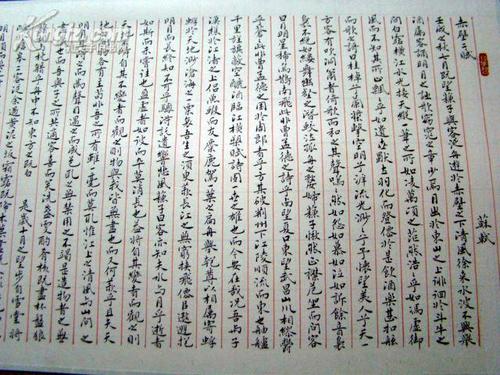 赤壁之賦 蘇軾
壬戌之秋七月既望蘇子與客泛舟遊於赤壁之下清風徐來水波不興舉
酒屬客誦明月之詩歌窈窕之章少焉月出於東山之上徘徊於斗牛之
間白露橫江水光接天縱一葦之所如凌萬頃之茫然浩浩乎如馮虛御
風而不知其所止飄飄乎如遺世獨立羽化而登僊於是飲酒樂甚扣舷
而歌之歌曰桂棹兮蘭槳擊空明兮泝流光渺渺兮予懷望美人兮天一
方客有吹洞簫者倚歌而和之其聲嗚嗚然如怨如慕如泣如訴餘音裊
裊不絕如縷舞幽壑之潛蛟泣孤舟之嫠婦蘇子愀然正襟危坐而問客
曰月明星稀烏鵲南飛此非曹孟德之詩乎西望夏口東望武昌山川相繆鬱
乎蒼蒼此非曹孟德之困於周郎者乎方其破荊州下江陵順流而東也舳艫
千里旌旗蔽空釃酒臨江橫槊賦詩固一世之雄也而今安在哉況吾與子
漁樵於江渚之上侶魚蝦而友麋鹿駕一葉之扁舟舉匏尊以相屬寄蜉
蝣於天地渺滄海之一粟哀吾生之須臾羨長江之無窮挾飛僊以遨遊抱
明月而長終知不可乎驟得託遺響於悲風蘇子曰客亦知夫水與月乎逝者
如斯而未嘗往也盈虛者如彼而卒莫消長也蓋將自其變者而觀之則
天地曾不能以一瞬自其不變者而觀之則物與我皆無盡也而又何羨乎且夫天
地之間物各有主苟非吾之所有雖一毫而莫取惟江上之清風與山間之
明月耳得之而為聲目遇之而成色取之無禁用之不竭是造物者之無
盡藏也而吾與子之所共適客喜而笑洗盞更酌肴核既盡杯盤狼
藉相與枕藉乎舟中不知東方之既白
是歲十月之望步自雪堂將
歸於臨皋二客從余過黃泥之坂霜露既降木葉盡